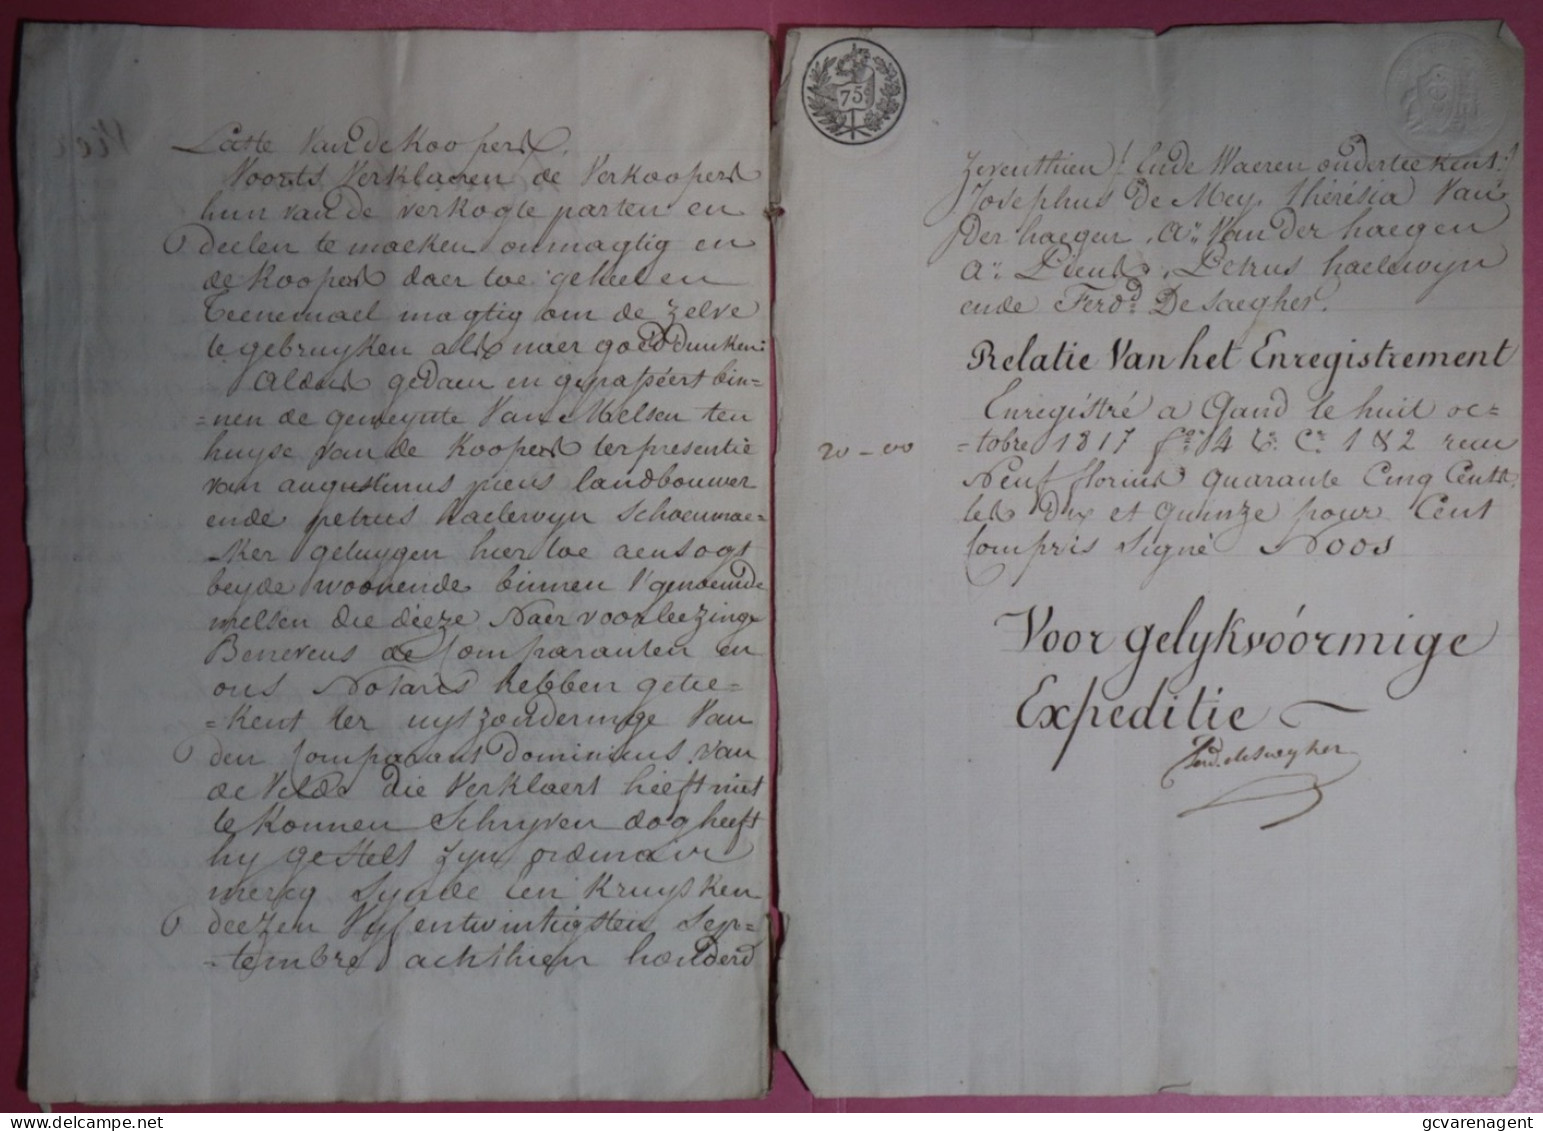 Laste Van de Koopers.
Voorts Verklaeren de Verkoopers
hun van de verkogte parten en
deelen te maeken onmagtig en
de Koopers daer toe geheel en
teenemael magtig om de zelve
te gebruyken als naer goeddunken:
Aldus gedaen en gepasséert bin=
=nen de gemeynte Van Melsen ten
huyse van de Koopers ter presentie
van augustinus piens landbouwer
ende petrus haelewyn Schoenmae=
=ker getuygen hier toe aensogt
beyde woonende binnen 't genoemde
melsen die déeze Naer voorleezinge
Benevens de Comparanten en
ons Notaris hebben getee=
=kent ter uytzonderinge Van
den Comparant Dominicus van
de Velde die Verklaert heeft niet
te Konnen Schryven dog heeft
hy gestelt zyn ordinair
mercq Synde een Kruysken
deezen Vyfentwintigsten Sep=
=tembre achthien honderd
75
Zeventhien! Ende Waeren onderteekent:
Josephus De Mey, thérésia Van
Der haegen, Van der haegen
Piens, Petrus haelewyn
ende Ferd. De Saegher.
Relatie Van het Enregistrement
Enregistré a Gand le huit oc=
20-00
=tobre 1817 f° 4 V° C° 1 & 2 recu
Neuf florins quarante Cinq Cents
les Dix et quinze pour Cent
Compris signé Noos
Voor gelykvóórmige
Expeditie
Ferd. desaegher
delcampe.net
gcvarenagent